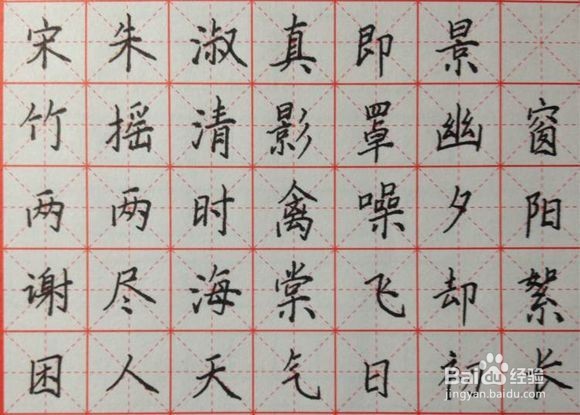 宋朱淑真即景
竹摇清影罩幽窗
两两时禽噪夕阳
谢尽海棠飞却絮
困人天气日初长
Baidu经验
jingyan.baidu.com